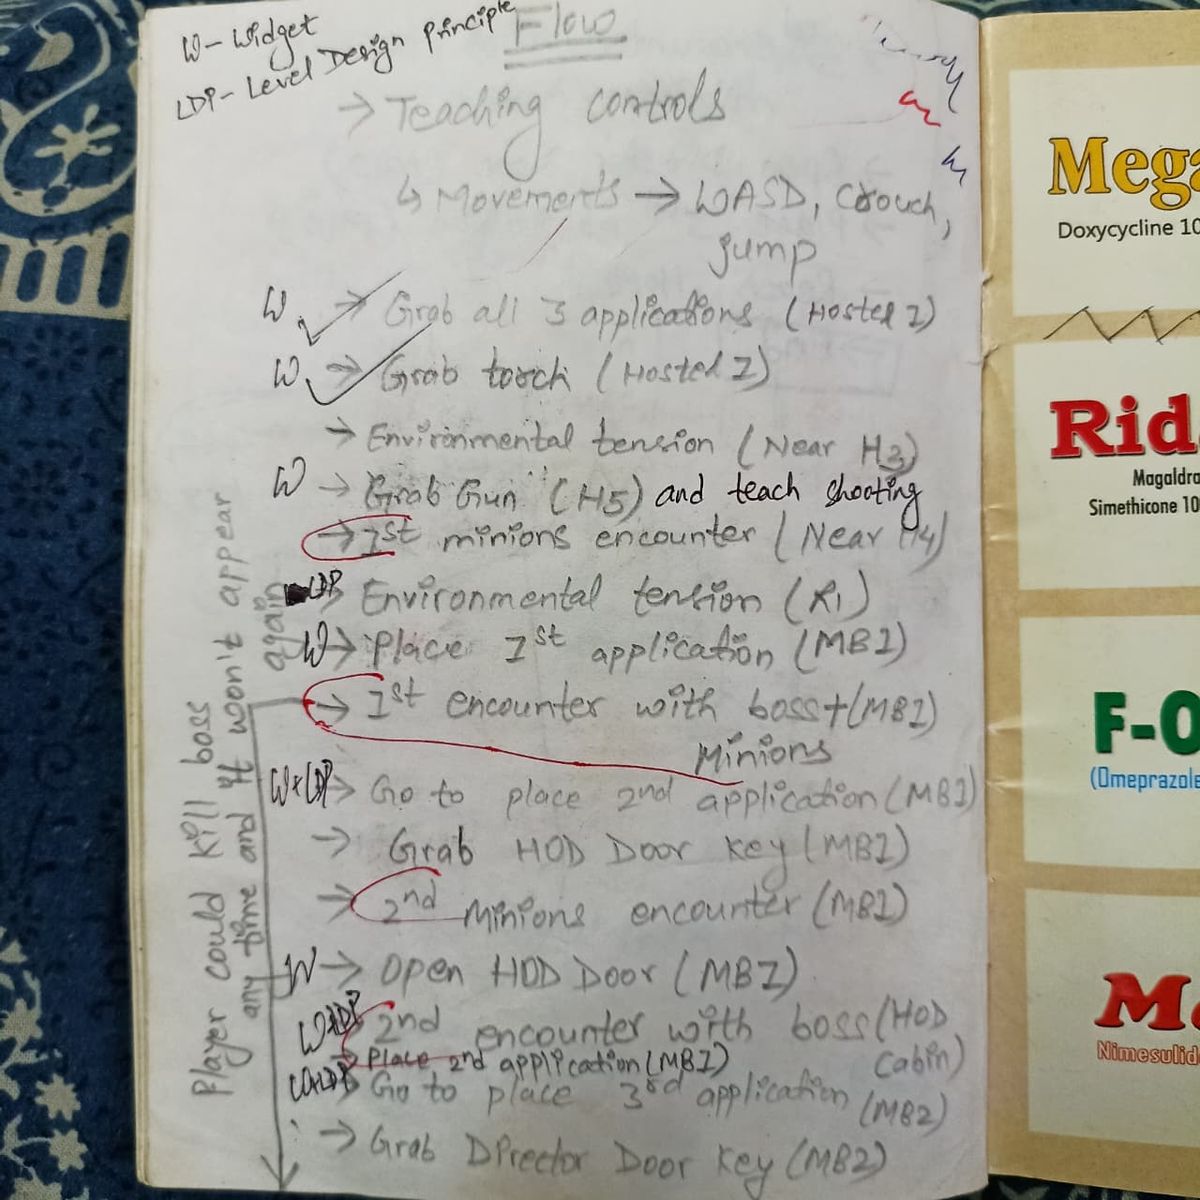 W - Widget
LDP - Level Design Principle
Flow
→ Teaching controls
↳ Movements → WASD, Crouch,
jump
W → Grab all 3 applications (Hostel 1)
W → Grab torch (Hostel 1)
→ Environmental tension (Near H3)
W → Grab Gun (H5) and teach shooting
→ 1st minions encounter (Near H4)
LDP → Environmental tension (R1)
W → Place 1st application (MB1)
→ 1st encounter with boss + (MB1)
Minions
W+LDP → Go to place 2nd application (MB1)
→ Grab HOD Door Key (MB1)
→ 2nd Minions encounter (MB1)
W → Open HOD Door (MB1)
W+LDP 2nd encounter with boss (HOD
Cabin)
→ Place 2nd application (MB1)
W+LDP → Go to place 3rd application (MB2)
→ Grab Director Door Key (MB2)
Player could kill boss
any time and it won't appear
again
Mega
Doxycycline 10
Rid
Magaldra
Simethicone 10
F-O
(Omeprazole
Nimesulid